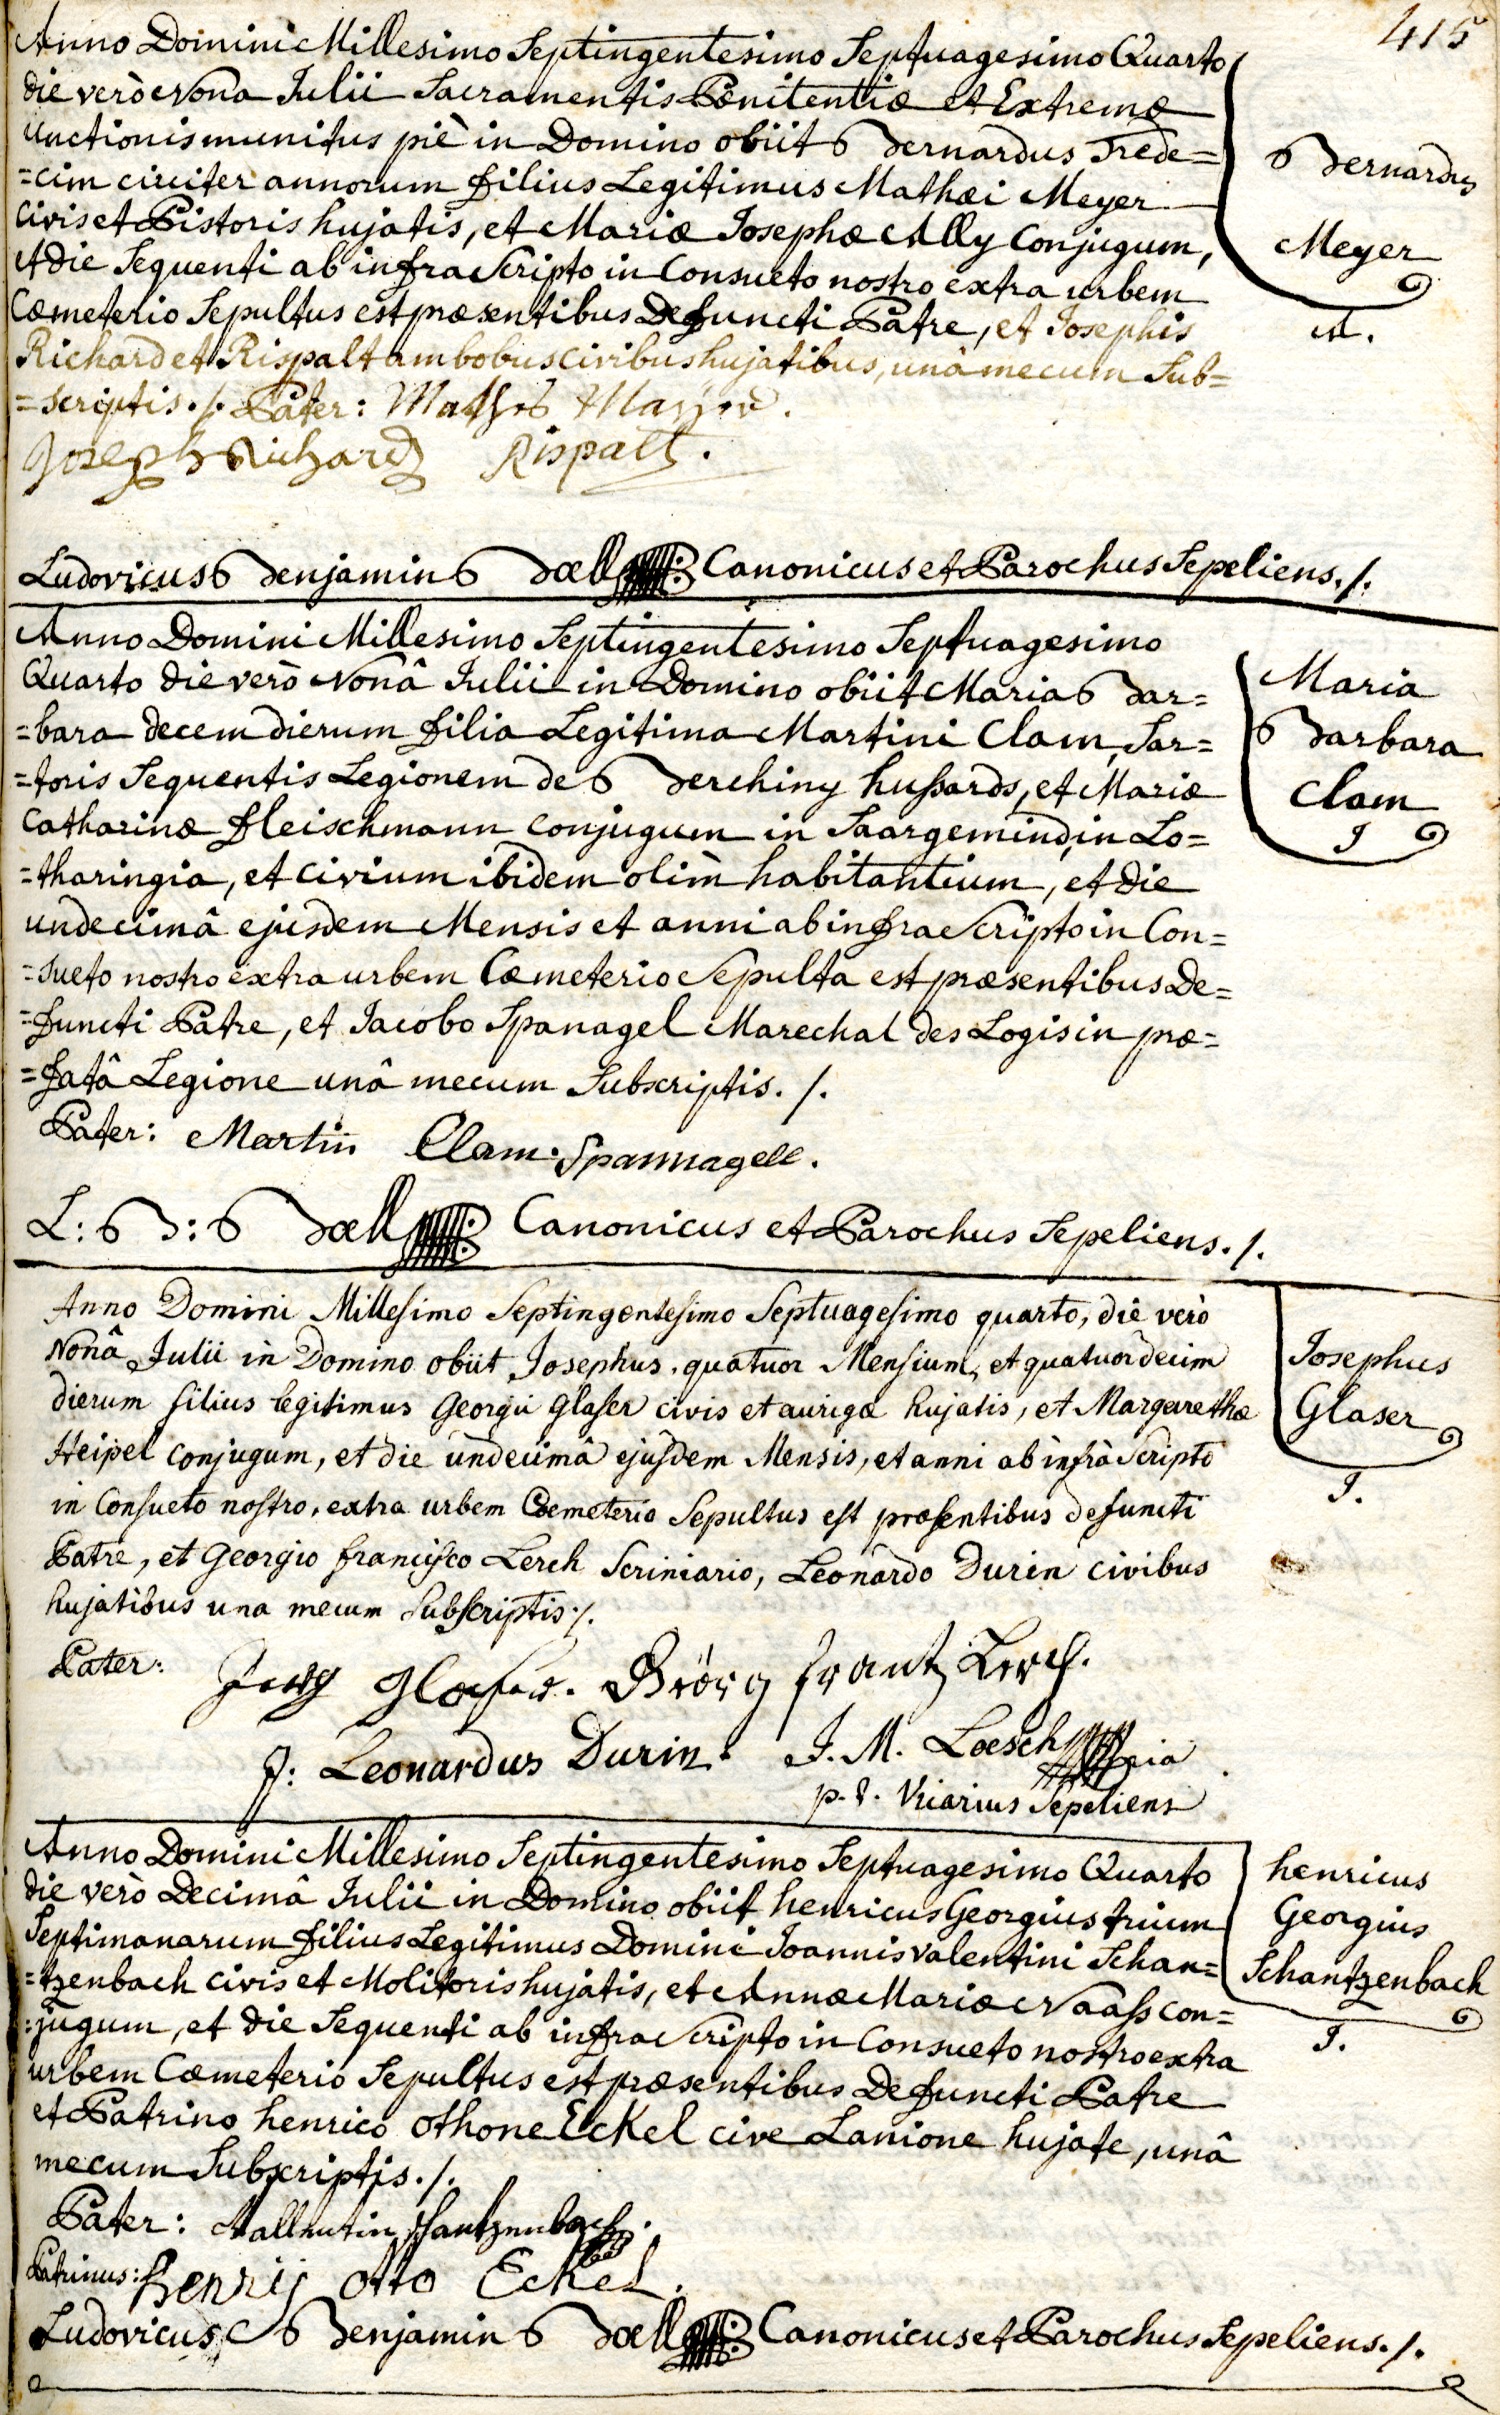 415
Anno Domini Millesimo Septingentesimo Septuagesimo Quarto
die verò Nona Julii Sacramentis Pœnitentiæ et Extremæ
unctionis munitus piè in Domino obiit Bernardus Trede=
=cim circiter annorum filius Legitimus Mathæi Meyer
Civis et Pistoris hujatis, et Mariæ Josephæ Ally Conjugum,
et die Sequenti ab infra Scripto in Consueto nostro extra urbem
Cœmeterio Sepultus est præsentibus Defuncti Patre, et Josephis
Richard et Rispalt ambobus civibus hujatibus, unâ mecum Sub=
=scriptis ./. Pater:
Joseph Richard Rispalt.
Bernardus
Meyer
A.
Ludovicus Benjamin Bœll Canonicus et Parochus Sepeliens ./.
Anno Domini Millesimo Septingentesimo Septuagesimo
Quarto die verò Nonâ Julii in Domino obiit Maria Bar=
=bara decem dierum filia Legitima Martini Clam, Sar=
=toris Sequentis Legionem de Berchiny hussards, et Mariæ
Catharinæ fleischmann conjugum in Saargemind, in Lo=
=tharingia, et civium ibidem olìm habitantium, et die
undecimâ ejusdem Mensis et anni ab infra Scripto in Con=
=sueto nostro extra urbem Cœmeterio Sepulta est præsentibus De=
=functi Patre, et Jacobo Spanagel Marechal des Logis in præ=
=fatâ Legione unâ mecum Subscriptis ./.
Pater: Martin Clam. Spannagell.
Maria
Barbara
Clam
J
L: B: Bœll Canonicus et Parochus Sepeliens ./.
Anno Domini Millesimo Septingentesimo Septuagesimo quarto, die verò
Nonâ Julii in Domino obiit Josephus, quatuor Mensium, et quatuordecim
dierum filius legitimus Georgii Glaser civis et aurigæ hujatis, et Margarethæ
Heipel conjugum, et die undecimâ ejusdem Mensis, et anni ab infrà Scripto
in Consueto nostro, extra urbem Cœmeterio Sepultus est præsentibus defuncti
Patre, et Georgio francisco Lerch Scriniario, Leonardo Durin civibus
hujatibus una mecum Subscriptis ./.
Pater: Glaser. Georg frantz Lerch.
J: Leonardus Durin. J. M. Loesch
p. t. Vicarius Sepeliens
Josephus
Glaser
J.
Anno Domini Millesimo Septingentesimo Septuagesimo Quarto
die verò Decimâ Julii in Domino obiit henricus Georgius trium
Septimanarum filius Legitimus Domini Joannis valentini Schan=
=tzenbach civis et Molitoris hujatis, et Annæ Mariæ Naass con=
=jugum, et die Sequenti ab infra Scripto in Consueto nostro extra
urbem Cœmeterio Sepultus est præsentibus Defuncti Patre
et Patrino henrico othone Eckel cive Lanione hujate, unâ
mecum Subscriptis ./.
Pater: Vallentin Schantzenbach.
Patrinus: Henrij Otto Eckel.
henricus
Georgius
Schantzenbach
J.
Ludovicus Benjamin Bœll Canonicus et Parochus Sepeliens ./.